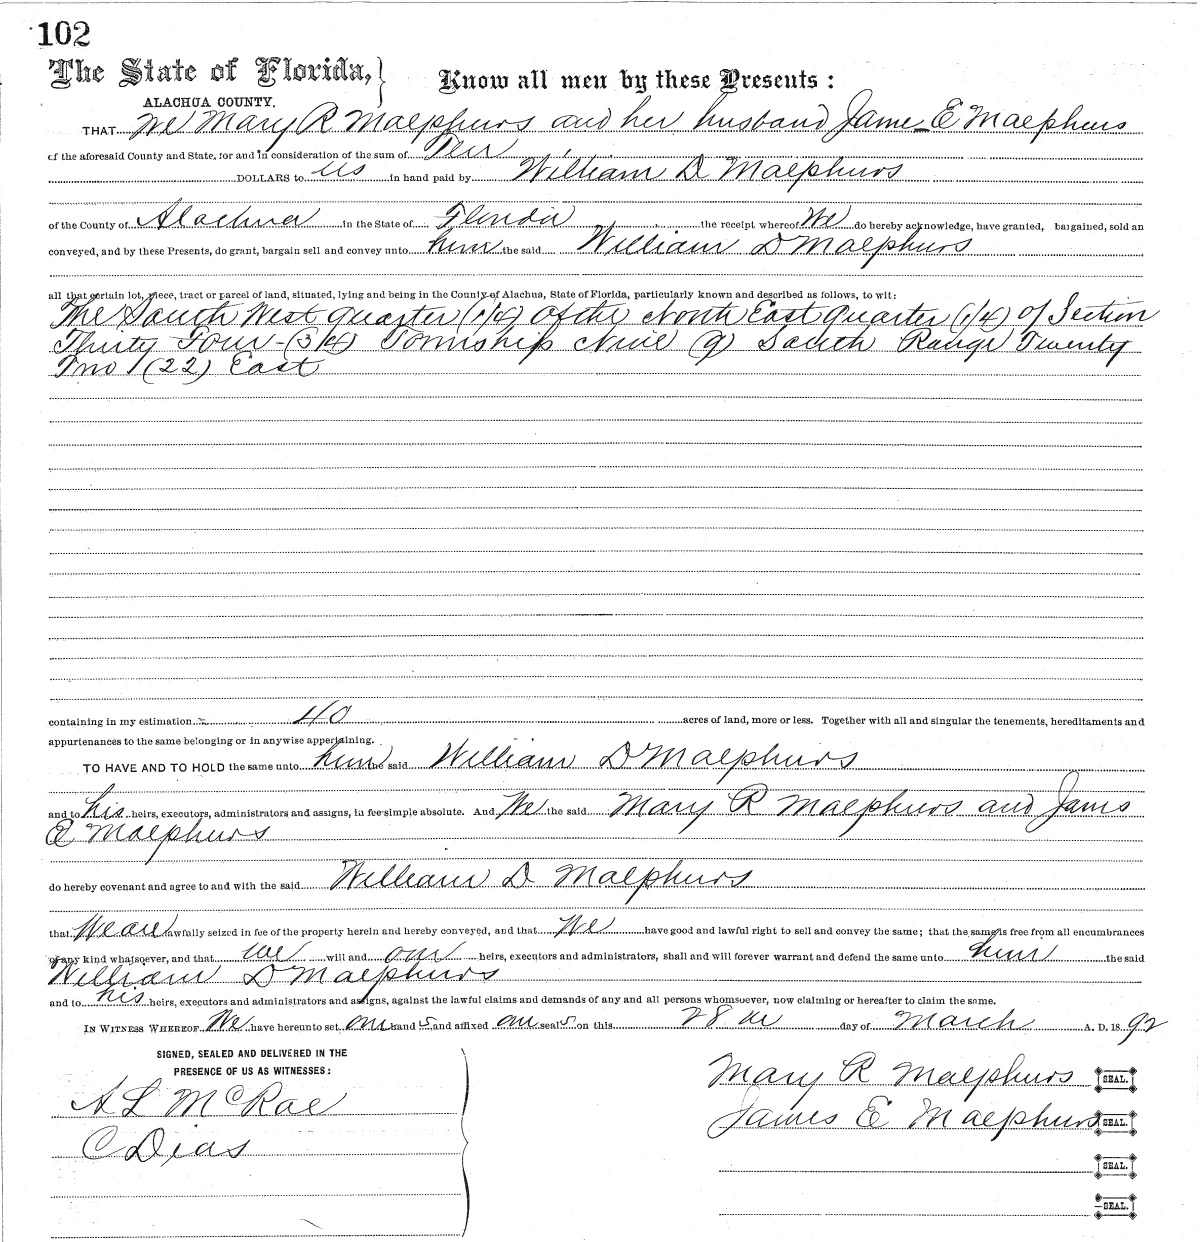 102
The State of Florida,} Know all men by these Presents:
ALACHUA COUNTY.
THAT We Mary R Malphurs and her husband Jame_ E Malphurs
of the aforesaid County and State, for and in consideration of the sum of Ten
DOLLARS to us in hand paid by William D Malphurs
of the County of Alachua in the State of Florida the receipt whereof We do hereby acknowledge, have granted, bargained, sold an
conveyed, and by these Presents, do grant, bargain sell and convey unto him the said William D Malphurs
all that certain lot, piece, tract or parcel of land, situated, lying and being in the County of Alachua, State of Florida, particularly known and described as follows, to wit:
The South West quarter (1/4) of the North East quarter (1/4) of Section
Thirty Four-(34) Township Nine (9) South Range Twenty
Two (22) East
containing in my estimation 40 acres of land, more or less. Together with all and singular the tenements, hereditaments and
appurtenances to the same belonging or in anywise appertaining.
TO HAVE AND TO HOLD the same unto him the said William D Malphurs
and to his heirs, executors, administrators and assigns, in fee simple absolute. And We the said Mary R Malphurs and Jams
E Malphurs
do hereby covenant and agree to and with the said William D Malphurs
that We are lawfully seized in fee of the property herein and hereby conveyed, and that We have good and lawful right to sell and convey the same; that the same is free from all encumbrances
of any kind whatsoever, and that we will and our heirs, executors and administrators, shall and will forever warrant and defend the same unto him the said
William D Malphurs
and to his heirs, executors and administrators and assigns, against the lawful claims and demands of any and all persons whomsoever, now claiming or hereafter to claim the same.
IN WITNESS WHEREOF We have hereunto set our hand s and affixed our seal s on this 28 th day of March A. D. 18 92
SIGNED, SEALED AND DELIVERED IN THE
PRESENCE OF US AS WITNESSES:
Mary R Malphurs SEAL.
A L McRae
James E Malphurs SEAL.
C Dias
SEAL.
SEAL.